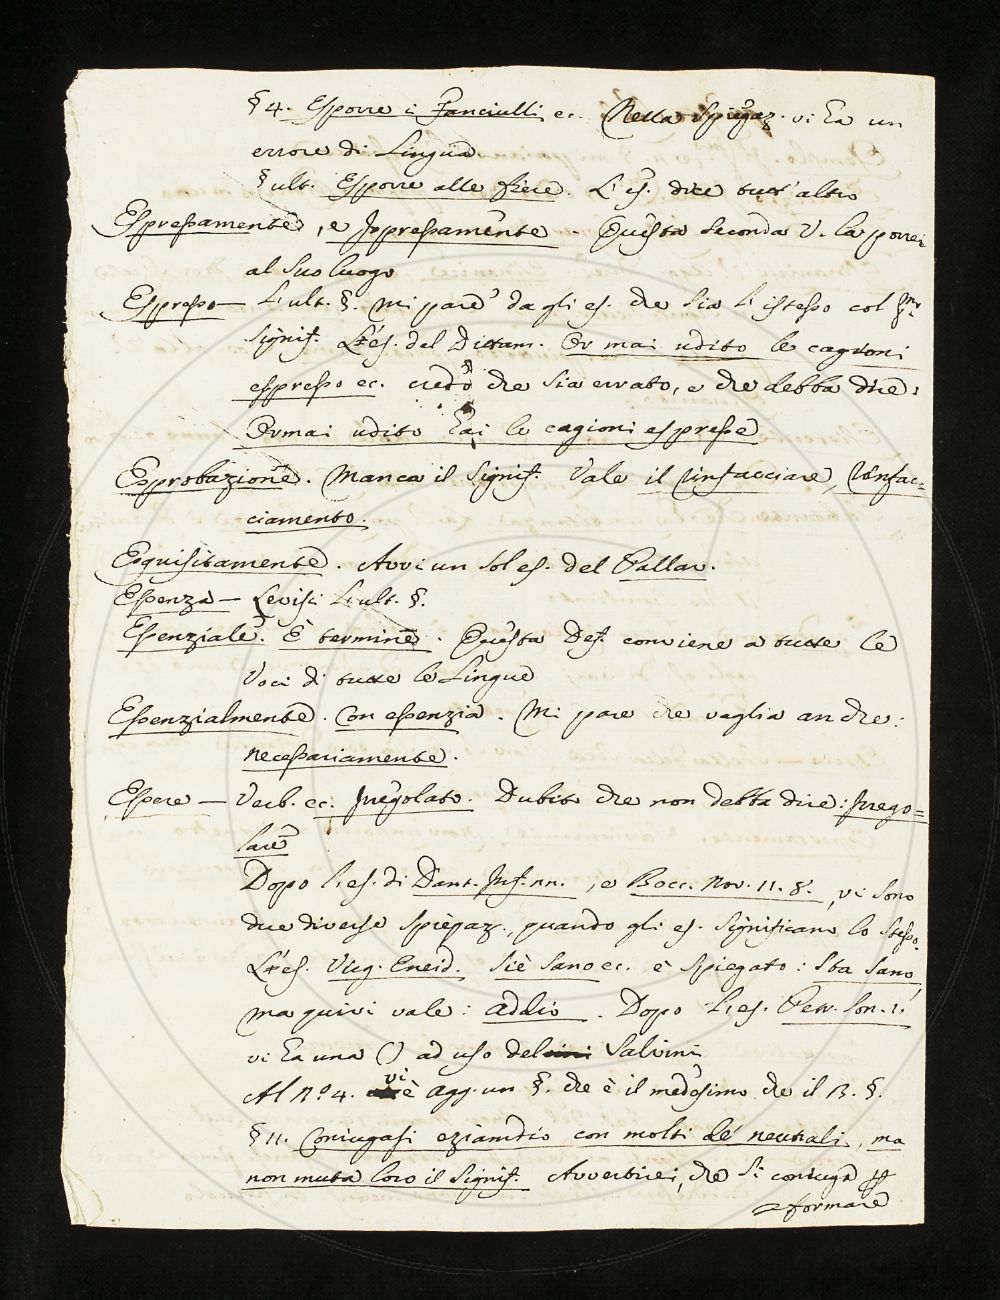 § 4. Esporre i Fanciulli ec. Nella Spiegaz. vi ha un
errore di Lingua.
§ ult. Esporre alle fiere. L'es. dice tutt'altro
Espressamente, e Ispressamente. Questa seconda V. la porrei
al suo luogo
Espresso — L'ult. §. mi pare dagli es. che sia l'istesso col
Signif. L'es. del Dittam. Or mai udito le cagioni
espresso ec. credo che sia errato, e che debba dire:
Ormai udito hai le cagioni espresse
Esprobazione. Manca il Signif. Vale il rinfacciare, rinfac=
ciamento.
Esquisitamente. Avvi un sol es. del Pallav.
Essenza — Levisi l'ult. §.
Essenziale. È termine. Questa Def. conviene a tutte le
Voci di tutte le Lingue
Essenzialmente. Con essenzia. Mi pare che vaglia anche:
necessariamente.
Essere — Verb. ec. Irregolato. Dubito che non debba dire: Irrego=
lare
Dopo l'es. di Dant. Inf. nn., e Bocc. Nov. 11. 8., vi sono
due diverse spiegaz., quando gli es. significano lo stesso.
L'es. Virg. Eneid. Siè sano ec. è spiegato: Sta sano,
ma quivi vale: addio. Dopo l'es. Petr. Son. 1.
vi ha una () ad uso del Salvini
Al N.º 4. vi è agg. un §. che è il medesimo che il R. §.
§ 11. Coniugasi eziamdio con molti de' neutrali, ma
non muta loro il signif. Avvertirei, che si coniuga
formare